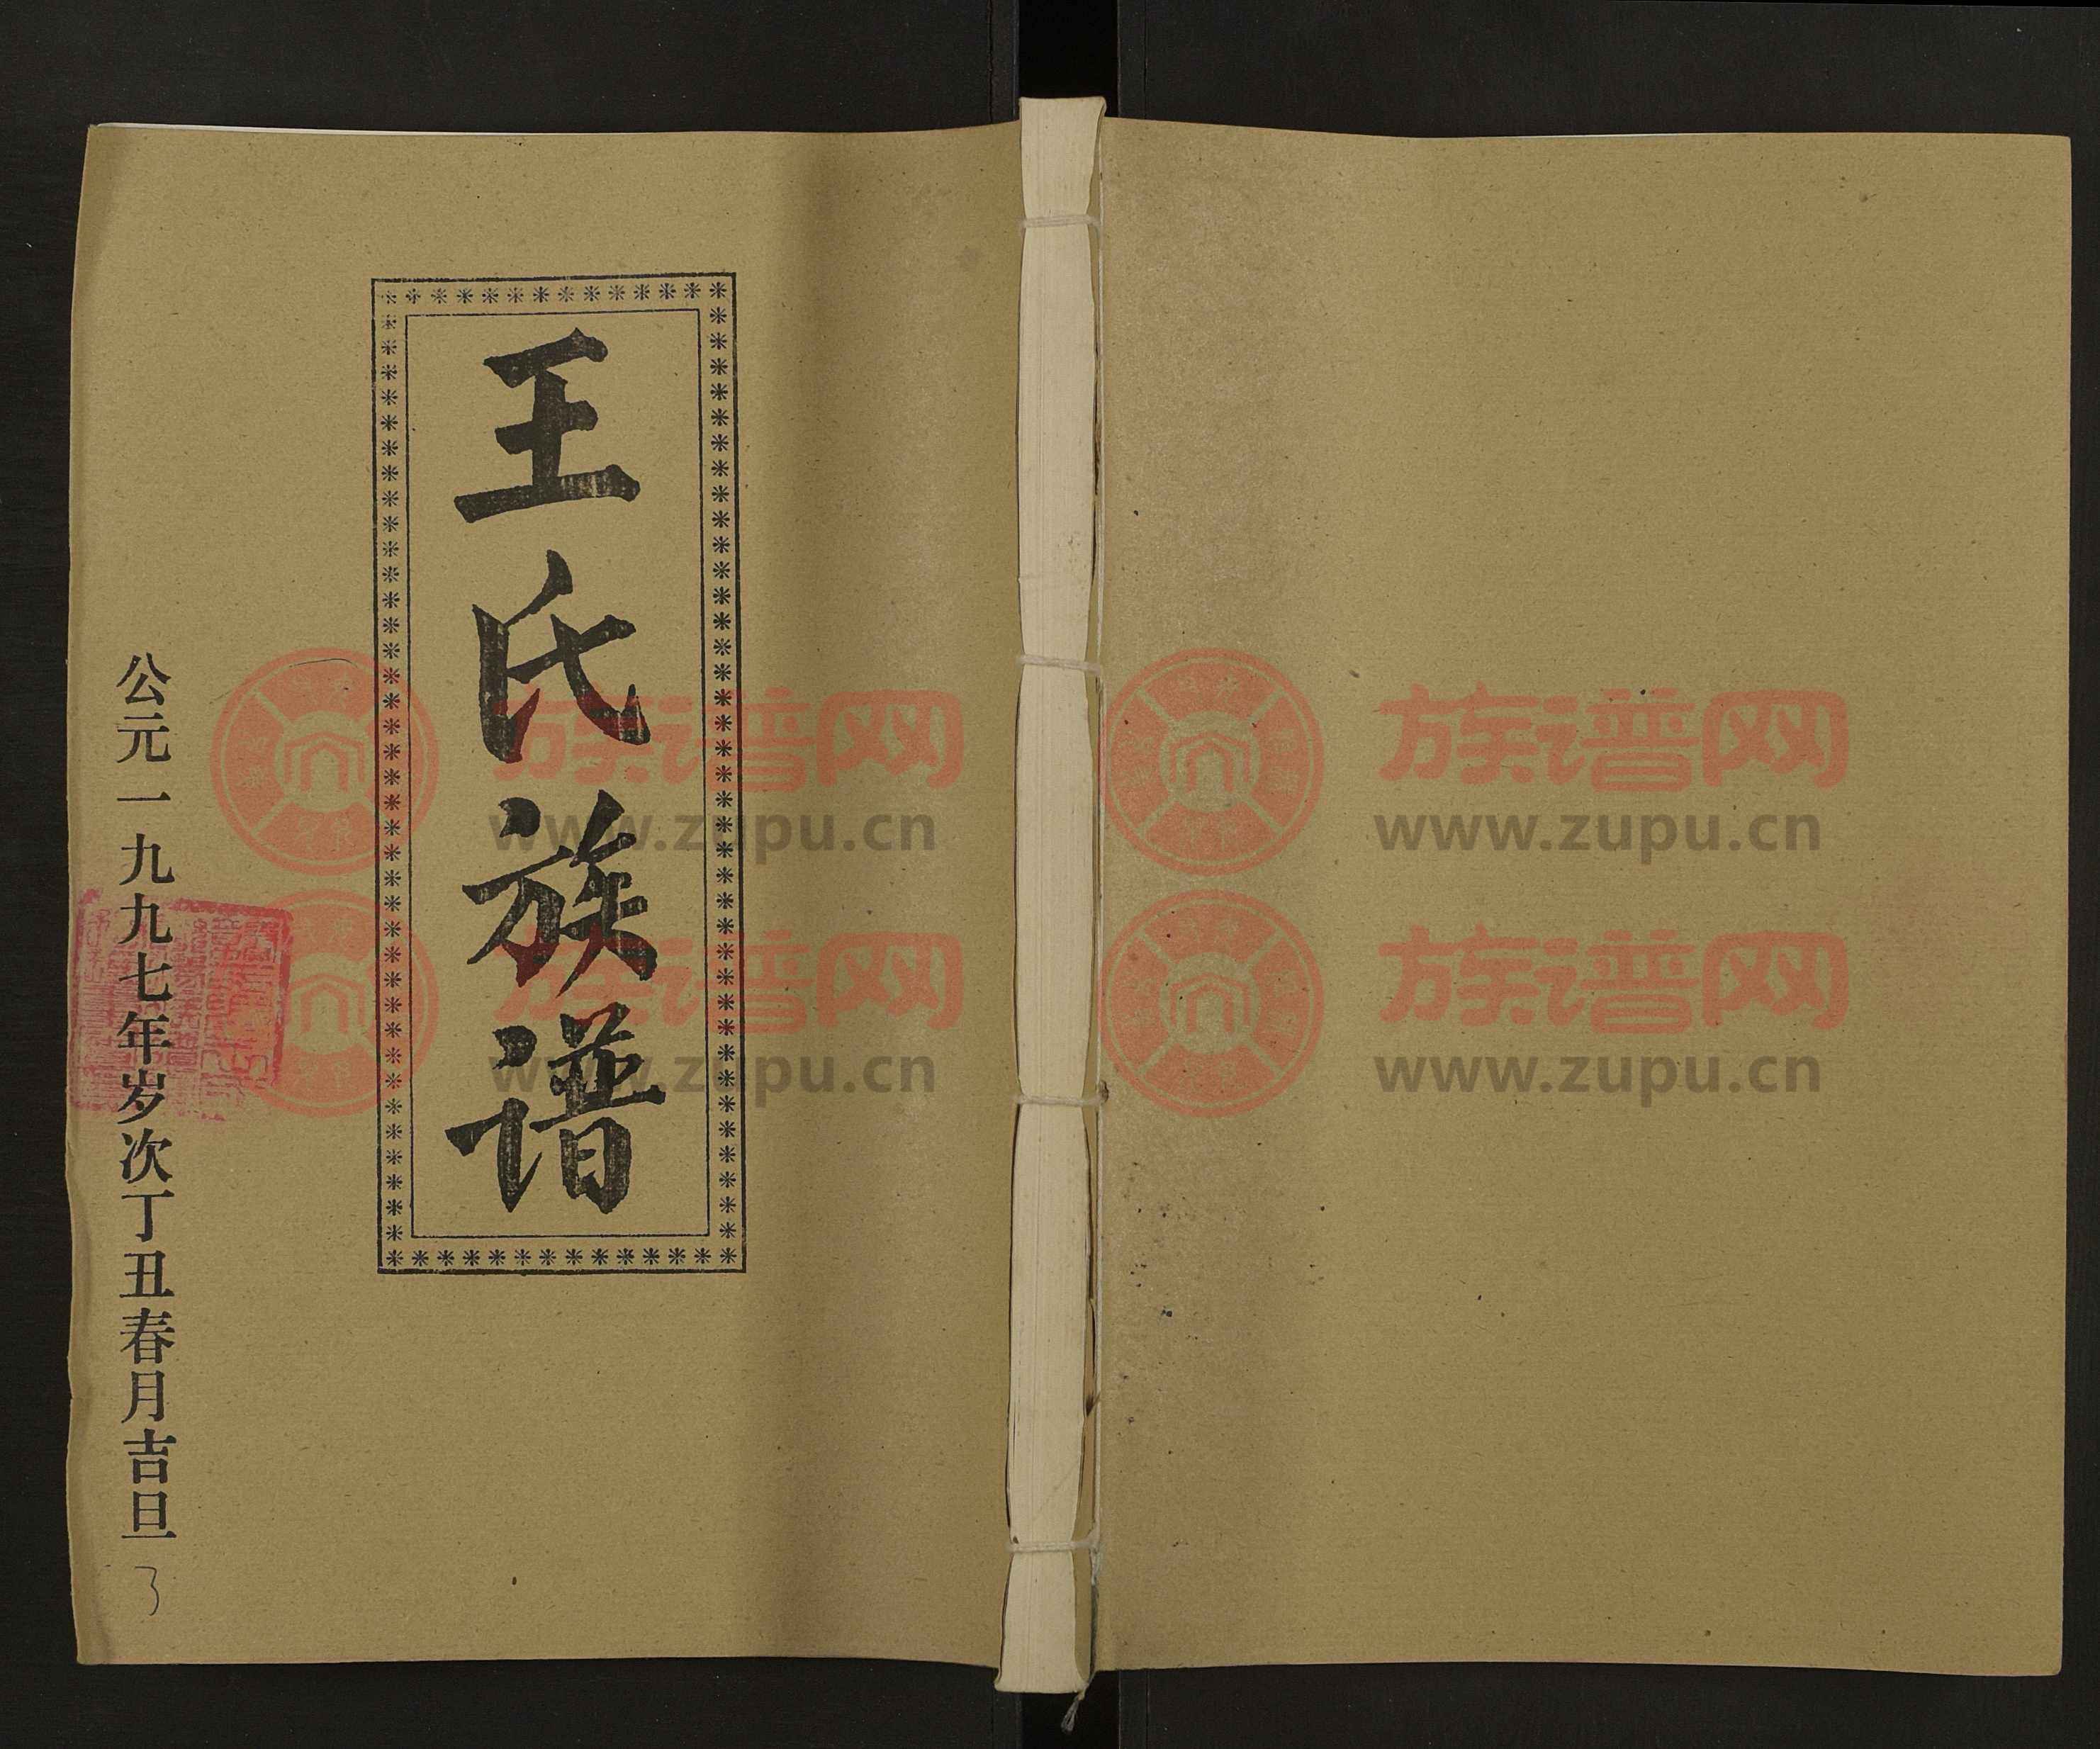 王氏族谱
公元一九九七年岁次丁丑春月吉旦
3
族谱网
www.zupu.cn
族谱网
www.zupu.cn
族谱网
www.zupu.cn
族谱网
www.zupu.cn